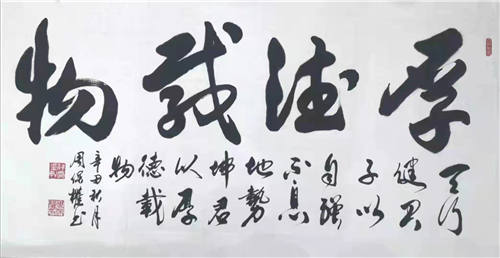 厚德载物
天行
健君
子以
自强
不息
地势
坤君
以厚
德载
物
辛丑秋月
周俊权书